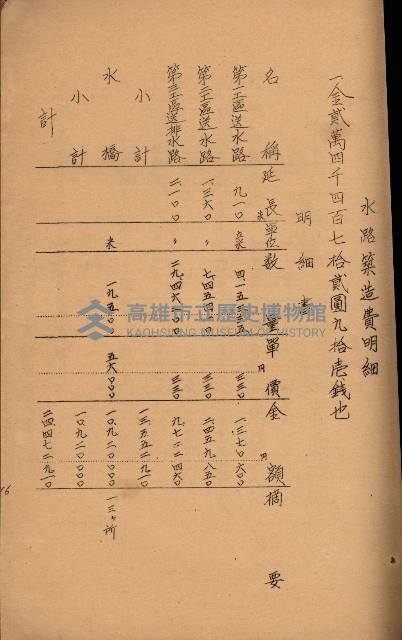 水路築造費明細
一金貳萬四千四百七拾貳圓九拾壱錢也
明細書
名稱 延長 單位 數量 單價 金額 摘要
第一工區送水路 九一〇米 立米 四、一五三三五 三三〇円 一、三七〇六〇〇円
第二工區送水路 一、三六〇 〃 三三〇 二、四五九八五〇
第三工區送排水路 二、一〇〇 〃 三三〇 九、七二二四六〇
小計 一三、五五二九一〇
水橋 米 一九五〇〇 五六〇〇〇 一〇、九二〇〇〇〇 一三ヶ所
小計 一〇、九二〇〇〇〇
計 二四、四七二九一〇
高雄市立歷史博物館
KAOHSIUNG MUSEUM OF HISTORY